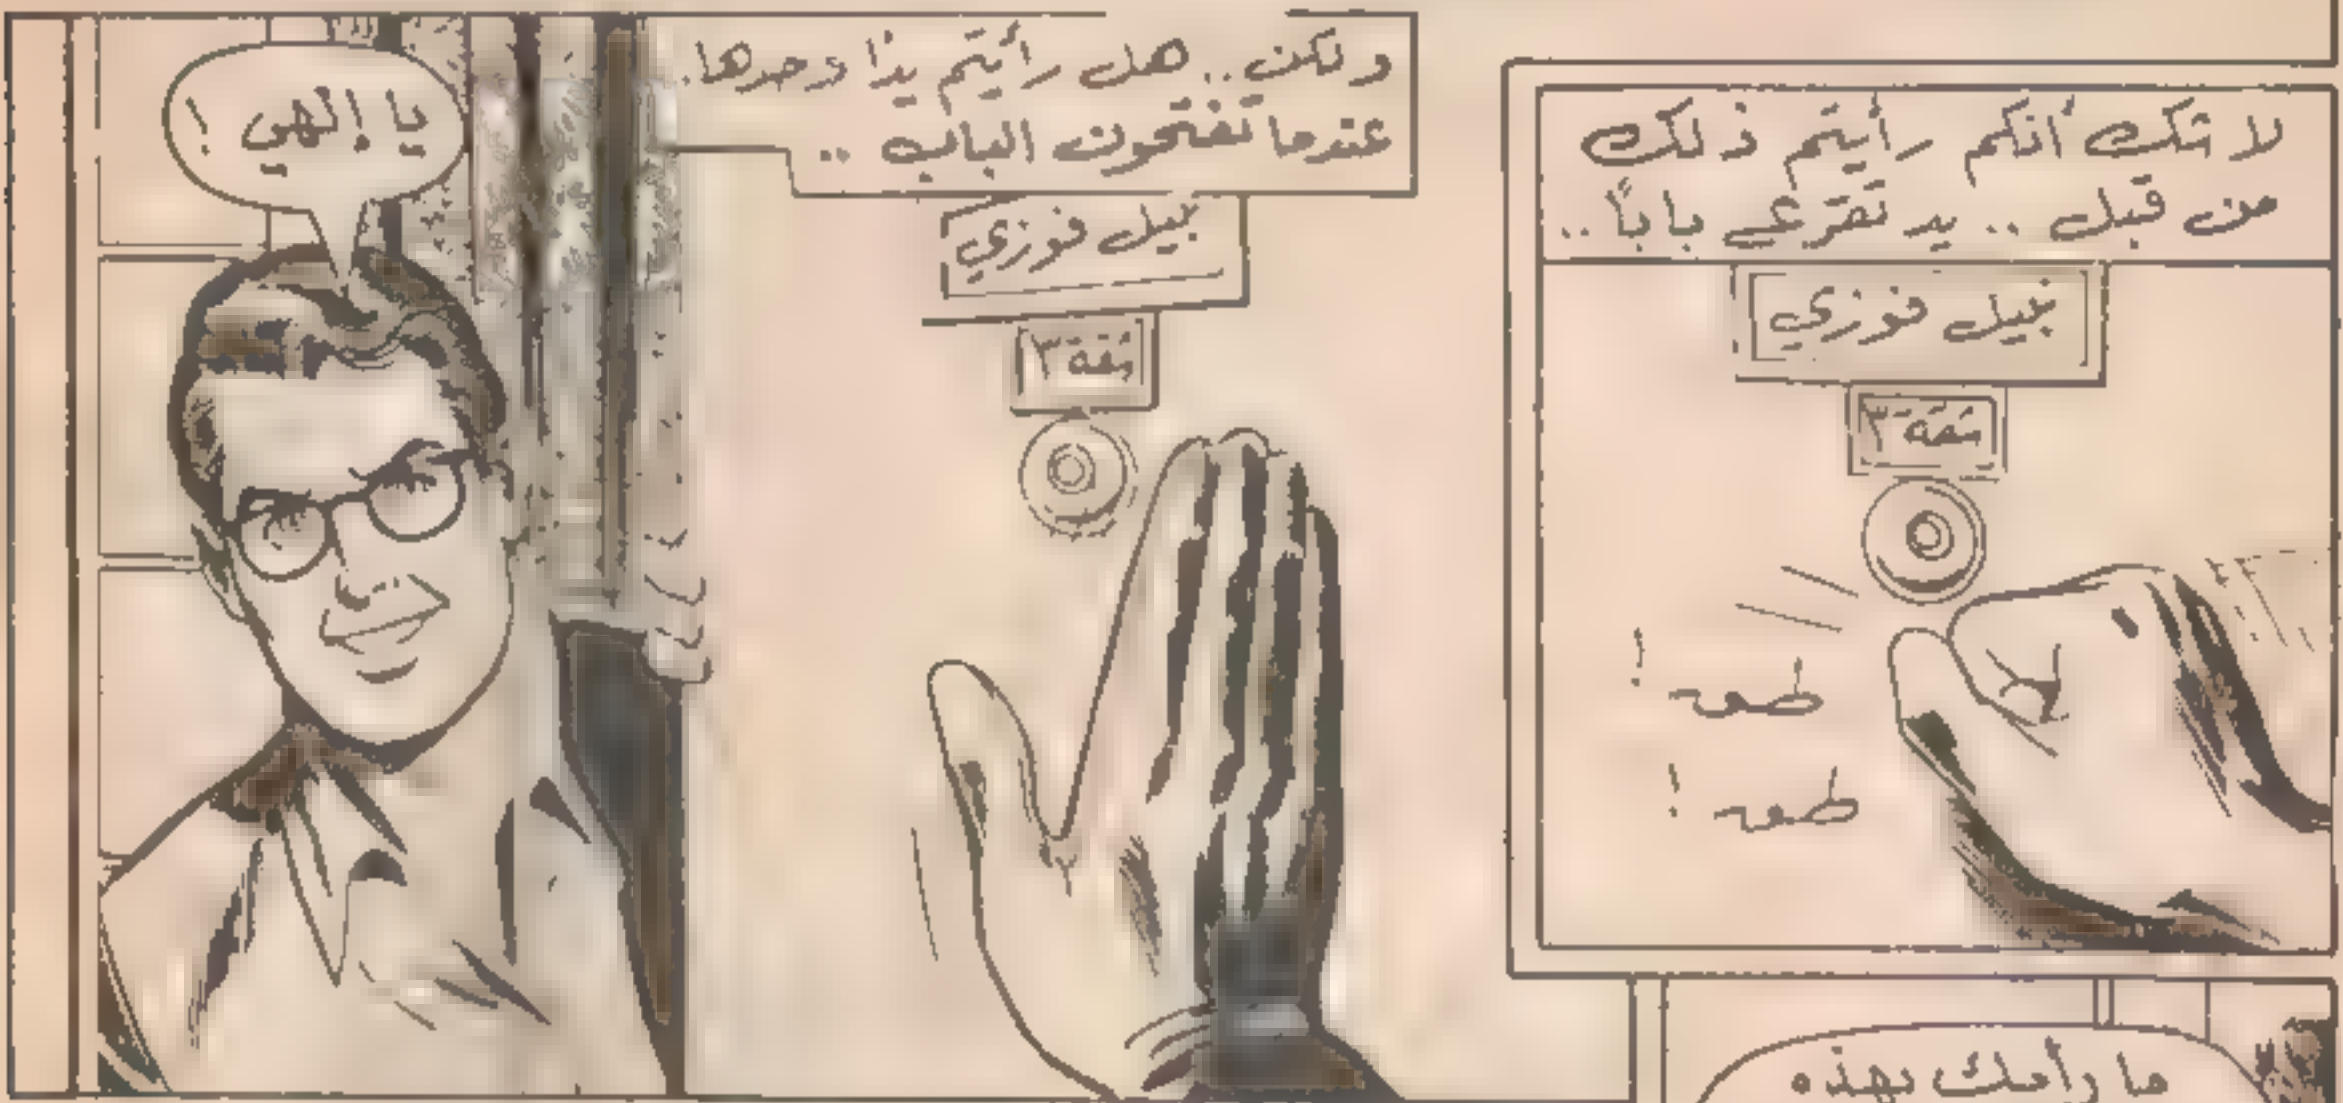 لا شك أنكم رأيتم ذلك
من قبل .. يد تقرع بابًا ..
نبيل فوزي
شقة ٣
طق !
طق !
ولكن .. هل رأيتم يدًا وحدها.
عندما تفتحون الباب ..
نبيل فوزي
شقة ٣
يا إلهي !
ما رأيك بهذه